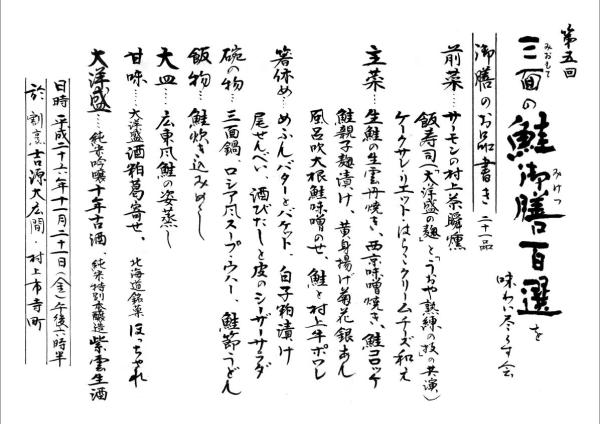 第五回
三面の鮭御膳百選を
みおもて
みけつ
味わい尽くす会
御膳のお品書き 二十一品
前菜…サーモンの村上茶瞬燻
飯寿司(「大洋盛の麹」と「うおや熟練の技」の共演)
ケークサレ・リエット・はらこクリームチーズ和え
主菜…生鮭の生雲丹焼き、西京味噌焼き、鮭コロッケ
鮭親子麹漬け、黄身揚げ菊花銀あん
風呂吹大根鮭味噌のせ、鮭と村上牛ポワレ
箸休め…めふんバターとバゲット、白子粕漬け
尾せんべい、酒びたしと皮のシーザーサラダ
碗の物…三面鍋、ロシア風スープ・ウハー、鮭節うどん
飯物 鮭炊き込みめし
大皿…広東風鮭の姿蒸し
甘味…大洋盛酒粕葛寄せ、北海道銘菓ほっちゃれ
大洋盛…純米吟醸十年古酒、純米特別本醸造紫雲生酒
日時 平成二十六年十一月二十一日(金)午後六時半
於 割烹吉源大広間・村上市寺町